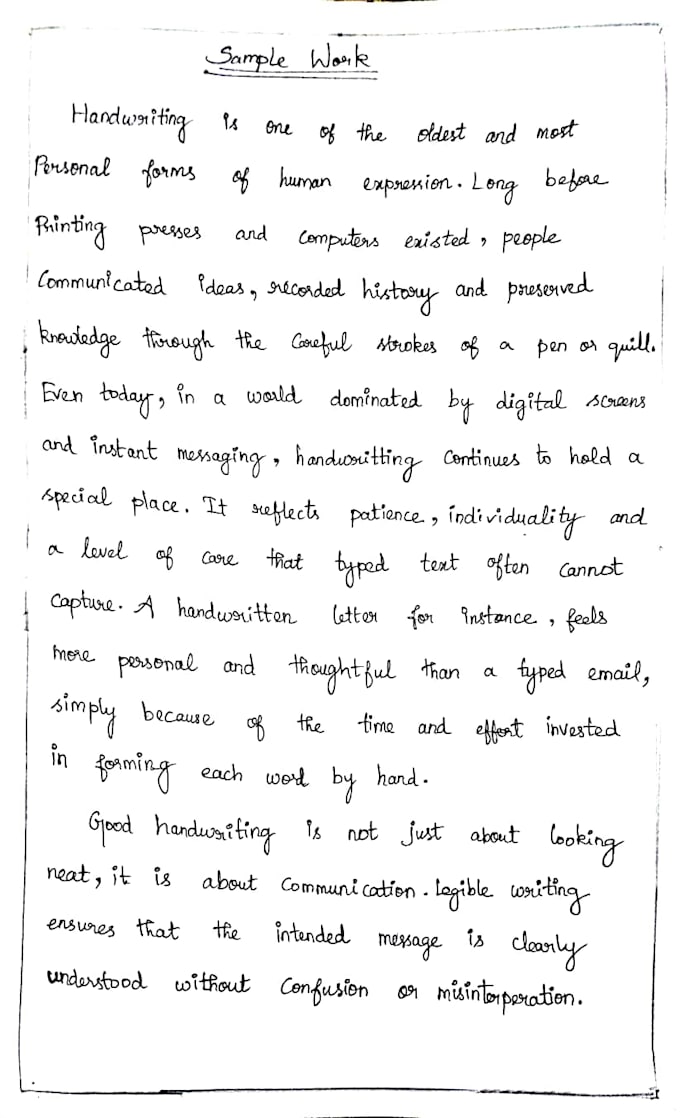 Sample Work
Handwriting is one of the oldest and most
Personal forms of human expression. Long before
Printing presses and computers existed, people
Communicated ideas, recorded history and preserved
knowledge through the Careful strokes of a pen or quill.
Even today, in a world dominated by digital screens
and instant messaging, handwritting Continues to hold a
special place. It reflects patience, individuality and
a level of care that typed text often cannot
Capture. A handwritten letter for instance, feels
more personal and thoughtful than a typed email,
simply because of the time and effort invested
in forming each word by hand.
Good handwriting is not just about looking
neat, it is about Communication. Legible writing
ensures that the intended message is clearly
understood without Confusion or misinterperation.